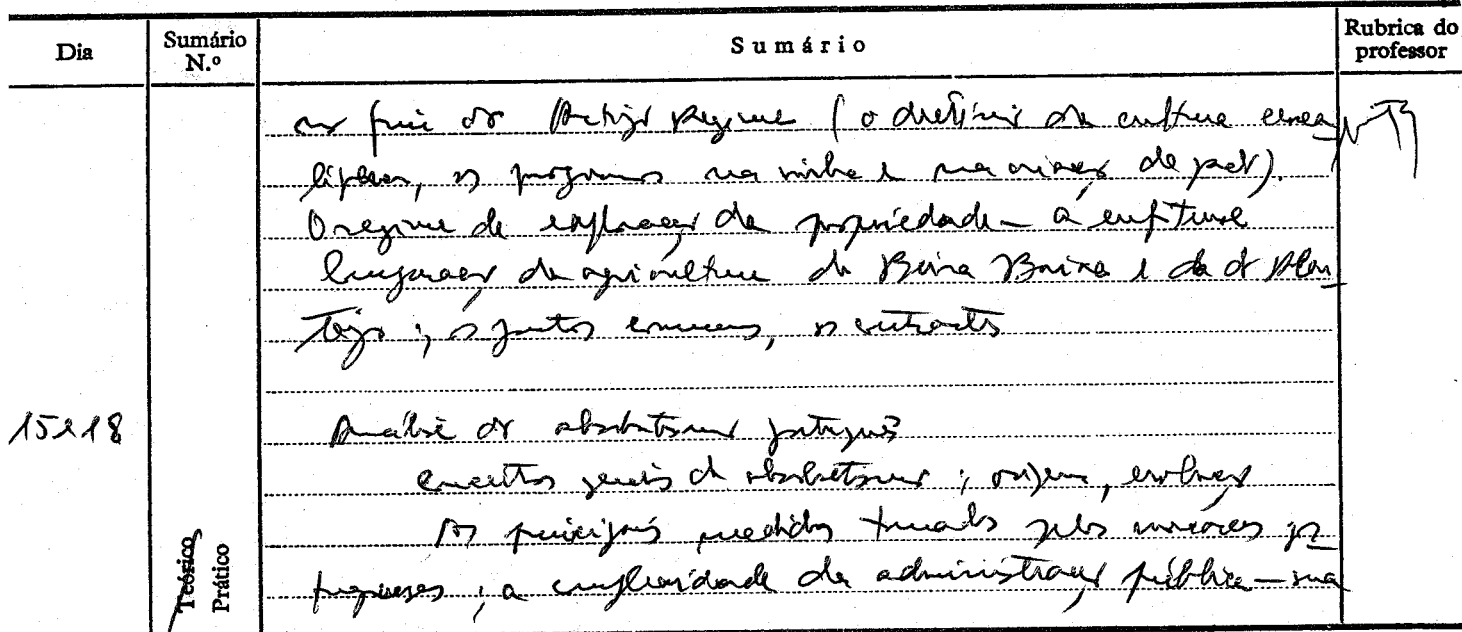 Dia
Sumário N.º
Sumário
Rubrica do professor
no fim do Antigo Regime (o declínio da cultura cerea
lífera, os progressos na vinha e na criação de gado).
O regime de exploração da propriedade – a enfiteuse
Comparação da agricultura da Beira Baixa e da do Alen
tejo; os pontos comuns, os contrastes
15 e 18
Teórico
Prático
Análise do absolutismo português
conceitos gerais de absolutismo; origem, evolução
As principais medidas tomadas pelos monarcas por
tugueses; a complexidade da administração pública – sua